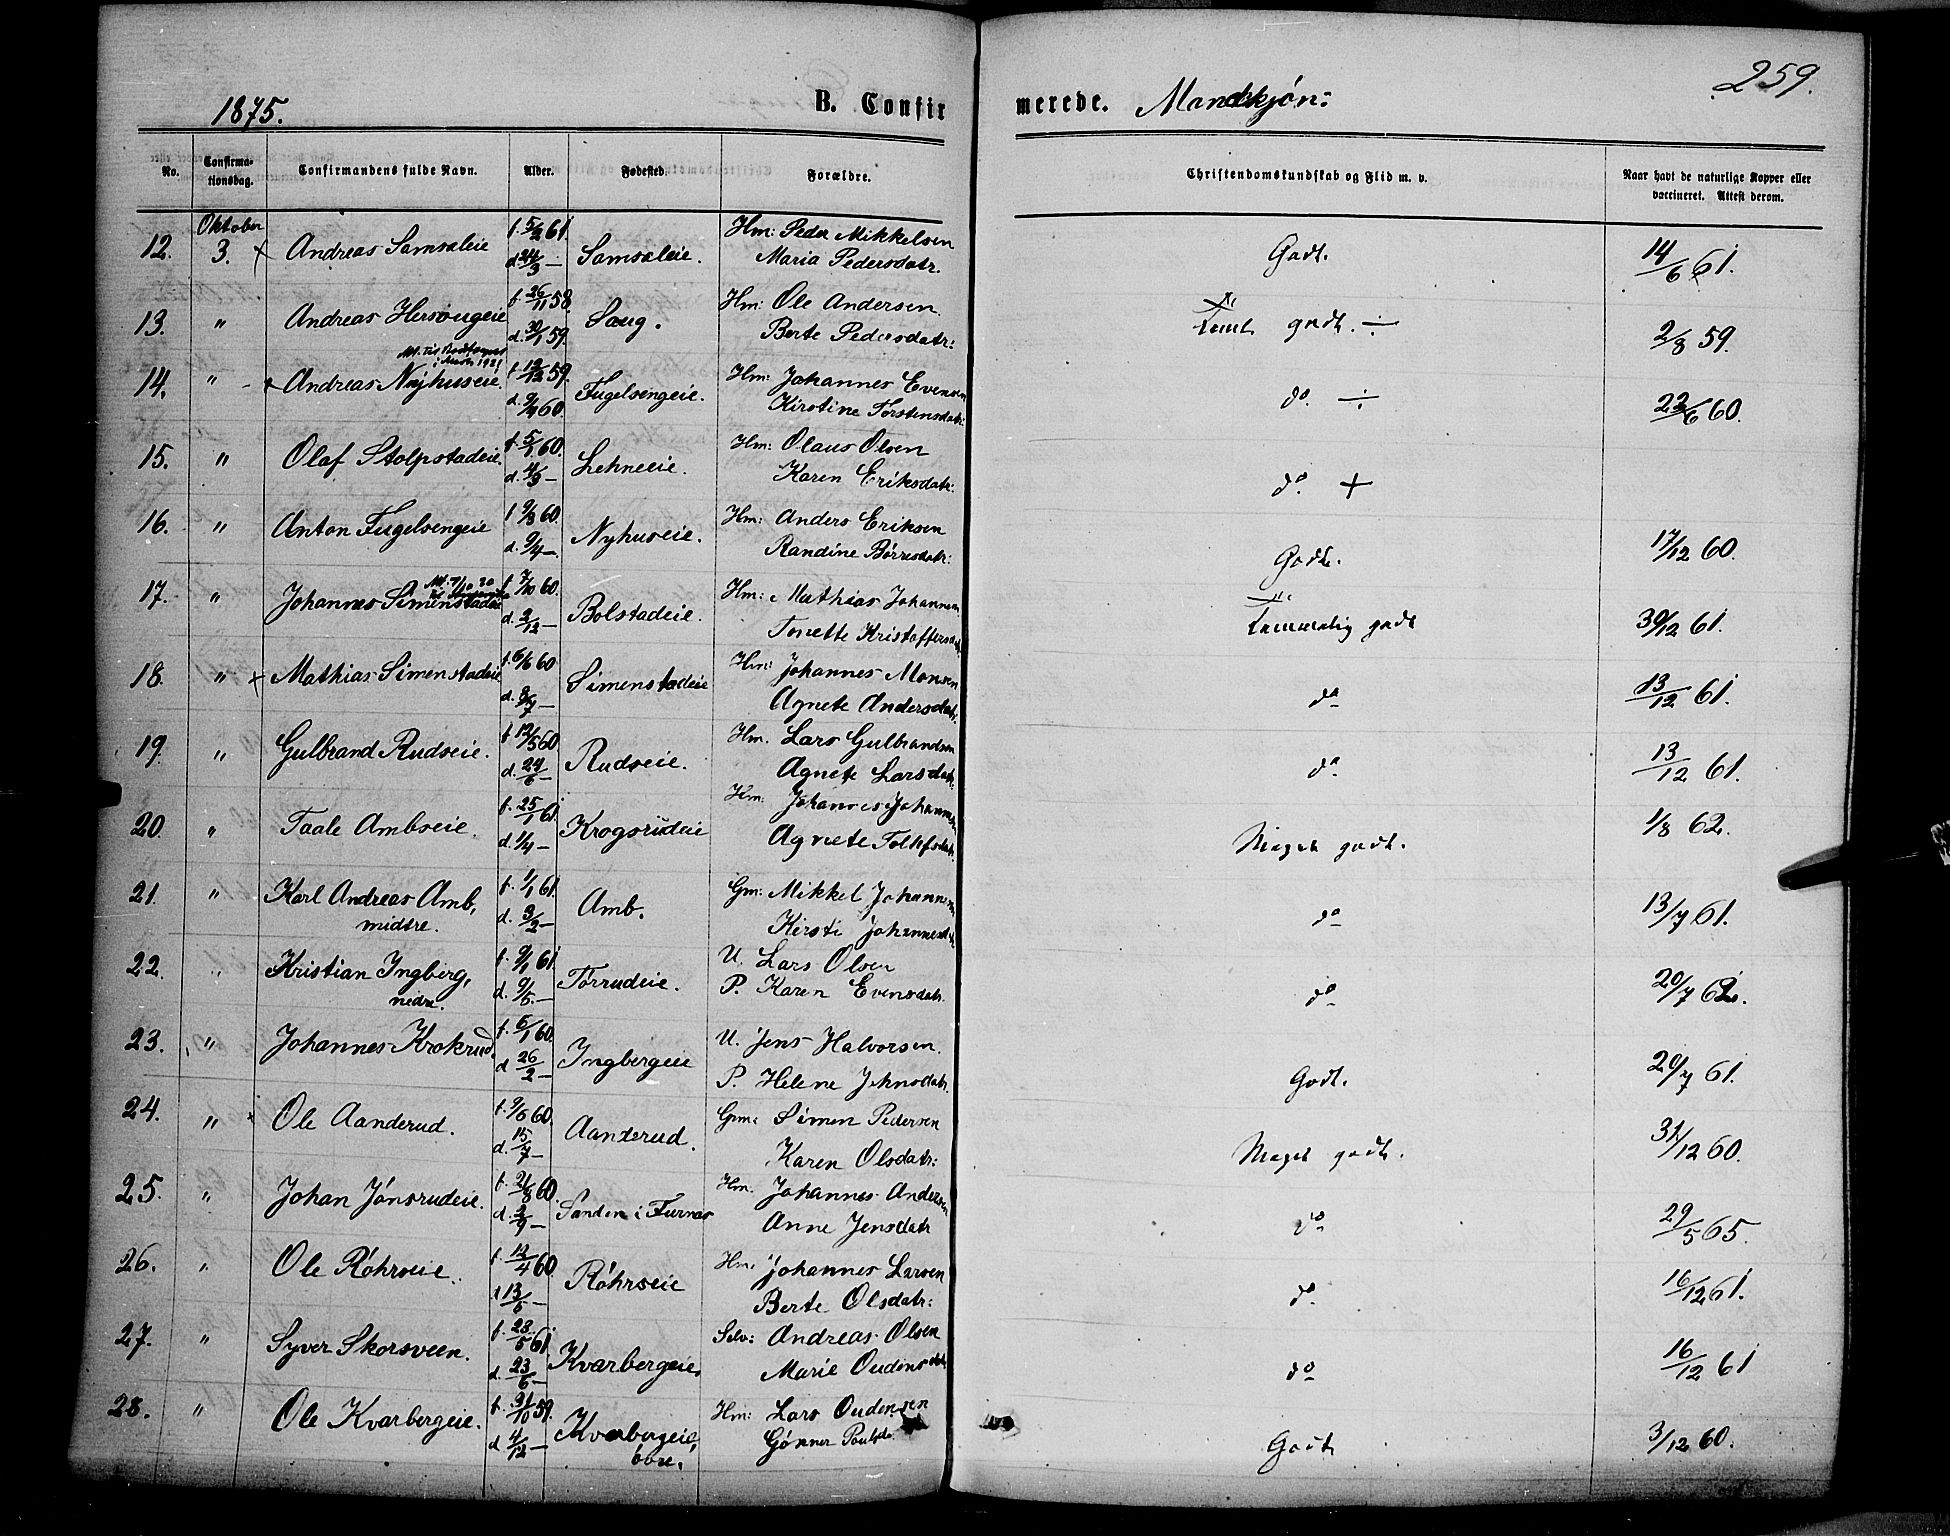 1875. B. Confirmerede. Mandkjøn: 259.
No. Confirmationsdag. Confirmandens fulde Navn. Alder. Fødested. Forældre. Christendomskundskab og Flid m. v. Naar havt de naturlige Kopper eller vaccineret. Attest derom.
Oktober
12. 3. + Andreas Samsaleie f. 5/2 61. d. 24/3 — Samsaleie. Hm: Peder Mikkelsen Maria Pedersdatr. Godt. 14/6 61.
13. " Andreas Hersougeie f. 26/11 58. d. 30/1 59. Saug. Hm: Ole Andersen. Berte Pedersdatr: godt. ÷ 2/8 59.
14. " + Andreas Nyhuseie f. 12/12 59. d. 9/4 60. Fugelsengeie. Hm: Johannes Evensen Kirstine Torstensdatr: do. ÷ 23/6 60.
15. " Olaf Stolpstadeie. f. 5/1 60. d. 4/3 — Lehneeie. Hm: Olaus Olsen Karen Eriksdatr: do. +
16. " Anton Fugelsengeie f. 9/3 60. d. 9/4 —. Nyhuseie. Hm: Anders Eriksen Randine Børresdatr: Godt. 17/12 60.
17. " Johannes Simenstadeie f. 7/10 60. d. 2/12 — Bolstadeie. Hm: Mathias Johannesen Tonette Kristoffersdatr. temmelig godt 30/12 61.
18. " + Mathias Simenstadeie f. 6/6 60 d. 8/7 — Simenstadeie Hm: Johannes Monsen Agnete Andersdatr. do 13/12 61.
19. " Gulbrand Rudseie. f. 12/5 60 d. 24/6 — Rudseie. Hm. Lars Gulbrandsen Agnete Larsdatr: do. 13/12 61.
20. " Taale Ambseie. f. 25/1 61. d. 1/4 — Krogsrudeie Hm: Johannes Johannesen Agnete Tollefsdatr. Meget godt. 1/8 62.
21. " Karl Andreas Amb, midtre. f. 1/1 61. d. 3/2 — Amb. Gm: Mikkel Johannesen Kirsti Johannesdatr do 13/7 61.
22. " Kristian Ingberg, nedre. f. 9/1 61. d. 9/5 — Tørrudeie. U. Lars Olsen P. Karen Evensdatr. do 20/7 62.
23. " Johannes Krokrud. f. 6/1 60. d. 26/2 — Ingbergeie U. Jens Halvorsen. P. Helene Johnsdatr. Godt. 20/7 61.
24. " + Ole Aanderud. f. 9/6 60. d. 15/7 — Aanderud. Gm: Simen Pedersen Karen Olsdatr: Meget godt. 31/12 60.
25. " Johan Jønsrudeie. f. 21/8 60. d. 2/9 — Sanden i Furnes Hm. Johannes Andersen Anne Jensdatr do 29/5 65.
26. " Ole Røhrseie. f. 12/4 60 d. 13/5 — Røhrseie Hm. Johannes Larsen Berte Olsdatr: do. 16/12 61.
27. " Syver Skorsveen. f. 23/5 61. d. 23/6 — Kvarbergeie. Selv: Andreas Olsen Marie Oudensdatr do 16/12 61
28. " Ole Kvarbergeie. f. 31/10 59. d. 4/12 — Kvarbergeie, øvre. Hm: Lars Oudensen Gjønner Poulsdr. Godt 3/12 60.